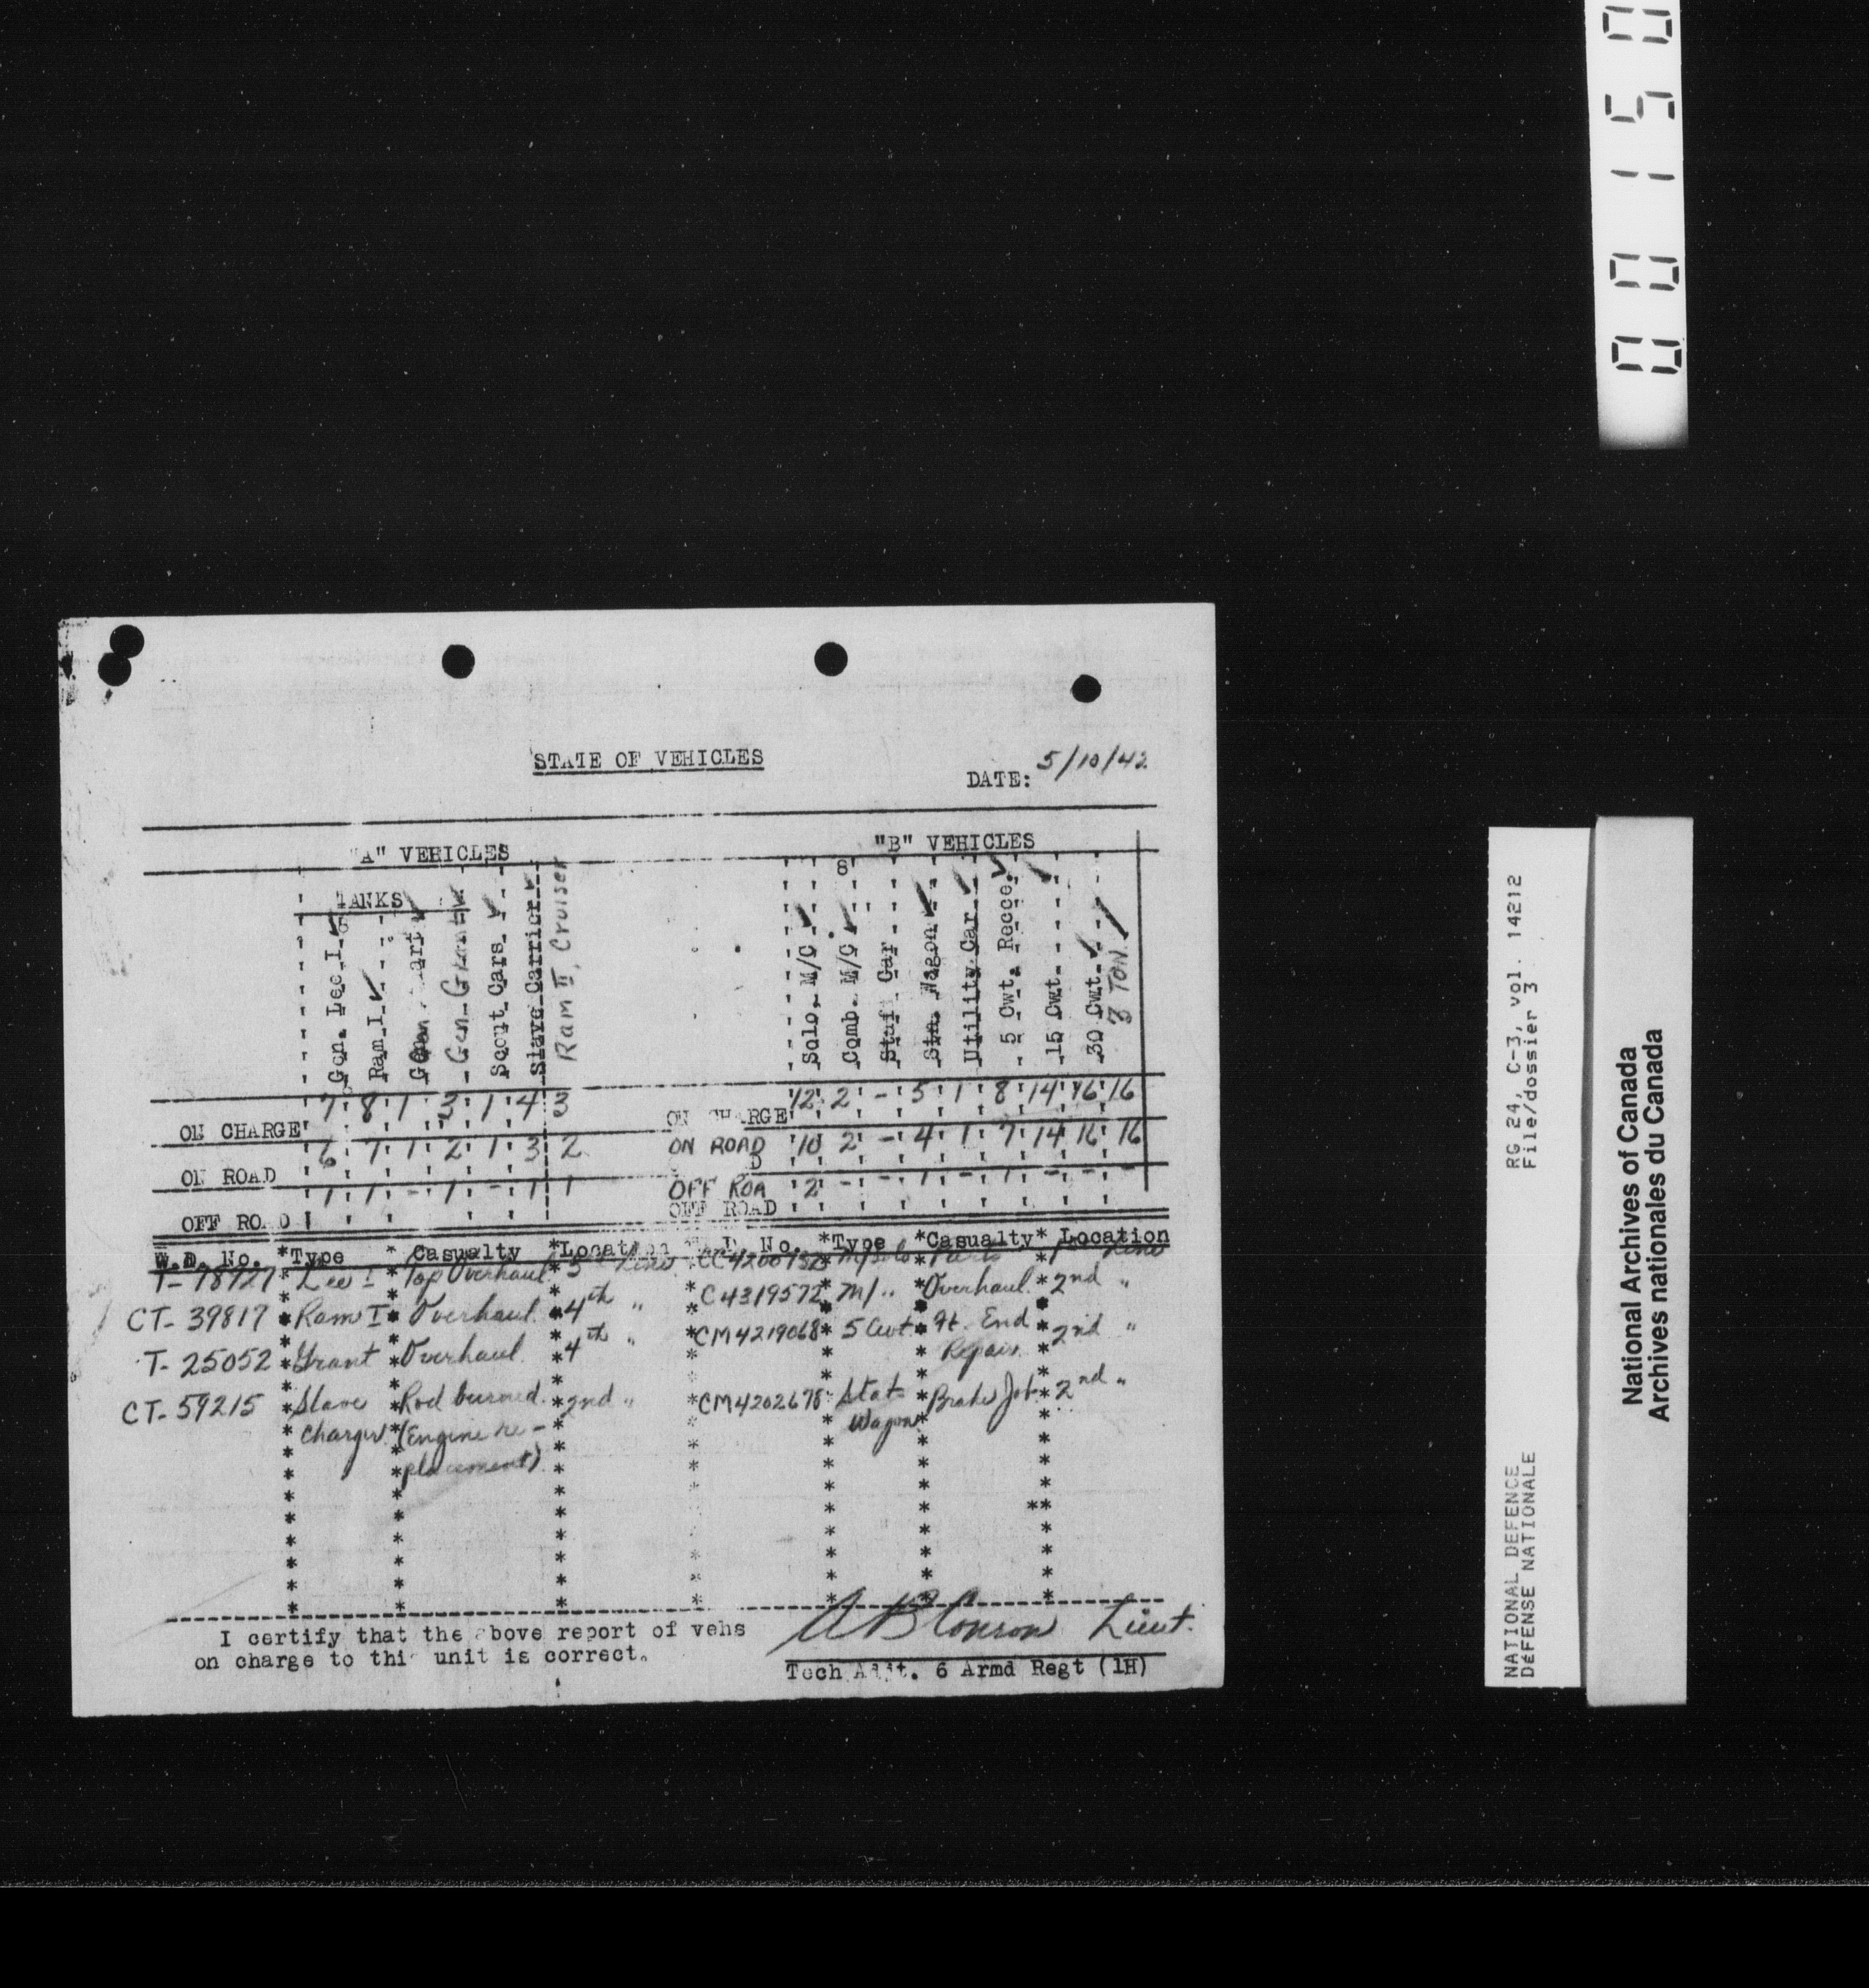 00150
STATE OF VEHICLES
DATE: 5/10/42
"A" VEHICLES
"B" VEHICLES
TANKS
Gen. Lee I
Ram I
Gen Grant
Scout Cars
Slave Carrier
Ram II Cruiser
Solo. M/C
Comb. M/C
Staff Car
Stn. Wagon
Utility Car
5 Cwt. Recce.
15 Cwt.
30 Cwt.
3 TON.
ON CHARGE 7 8 1 3 1 4 3
ON CHARGE 12 2 - 5 1 8 14 16 16
ON ROAD 6 7 1 2 1 3 2
ON ROAD 10 2 - 4 1 7 14 16 16
OFF ROAD 1 1 - 1 - 1 1
OFF ROA D 2 - - 1 - 1 - - -
OFF ROAD
W.D. No. *Type * Casualty *Location D. No. *Type *Casualty* Location
T-78927 * Lee I * Top Overhaul * Line M/Solo * Parts * 1st Line
CT- 39817 * Ram I * Overhaul * 4th " * C4319572 * M/ " * Overhaul. * 2nd "
T- 25052 * Grant * Overhaul * 4th " * CM4219068 * 5 Cwt. * Ft. End Repair. * 2nd "
CT- 59215 * Slave Charger * Rod burned (Engine re-placement) * 2nd " * CM4202678 * Stat. Wagon * Brake Job * 2nd "
I certify that the above report of vehs
on charge to this unit is correct.
Lieut.
Tech Adjt. 6 Armd Regt (1H)
RG 24, C-3, vol. 14212
File/dossier 3
NATIONAL DEFENCE
DÉFENSE NATIONALE
National Archives of Canada
Archives nationales du Canada